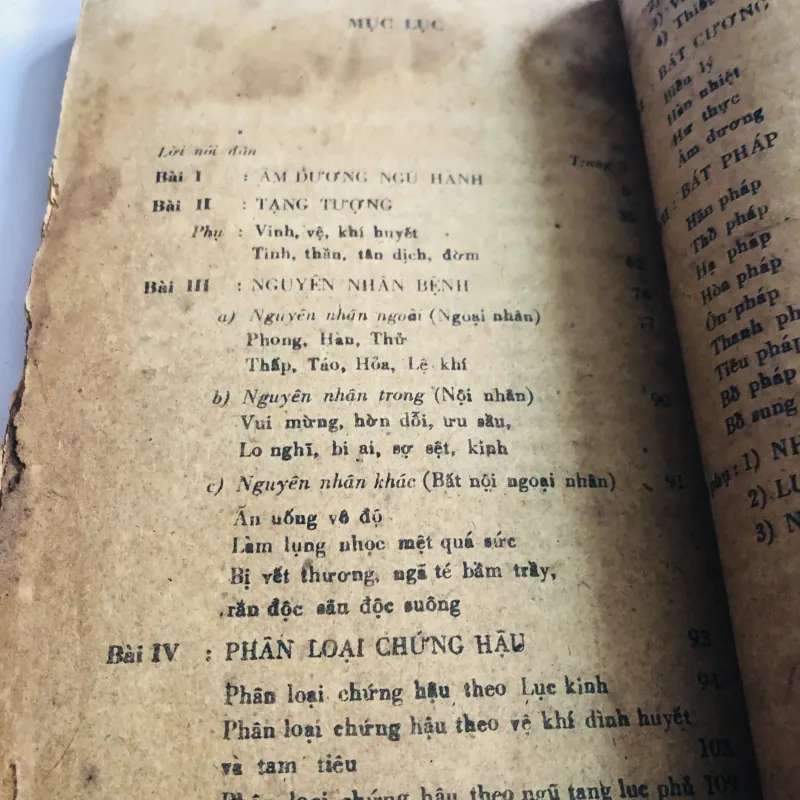 MỤC LỤC
Lời nói đầu
Trang
Bài I : ÂM DƯƠNG NGŨ HÀNH 5
Bài II : TẠNG TƯỢNG
Phụ : Vinh, vệ, khí huyết
Tinh, thần, tân dịch, đờm 62
Bài III : NGUYÊN NHÂN BỆNH 76
a) Nguyên nhân ngoài (Ngoại nhân) 77
Phong, Hàn, Thử
Thấp, Táo, Hỏa, Lệ khí
b) Nguyên nhân trong (Nội nhân) 90
Vui mừng, hờn dỗi, ưu sầu,
Lo nghĩ, bi ai, sợ sệt, kinh
c) Nguyên nhân khác (Bất nội ngoại nhân) 91
Ăn uống vô độ
Làm lụng nhọc mệt quá sức
Bị vết thương, ngã té bầm trầy,
rắn độc sâu độc suông
Bài IV : PHÂN LOẠI CHỨNG HẬU 93
Phân loại chứng hậu theo Lục kinh 94
Phân loại chứng hậu theo vệ khí dinh huyết
và tam tiêu 103
Phân loại chứng hậu theo ngũ tạng lục phủ 109
4) Thiết
BÁT CƯƠNG
Biểu lý
Hàn nhiệt
Hư thực
Âm dương
: BÁT PHÁP
Hãn pháp
Thổ pháp
Hạ pháp
Hòa pháp
Ôn pháp
Thanh ph
Tiêu pháp
Bổ pháp
Bổ sung
phụ : 1) NH
2) LU
3) N